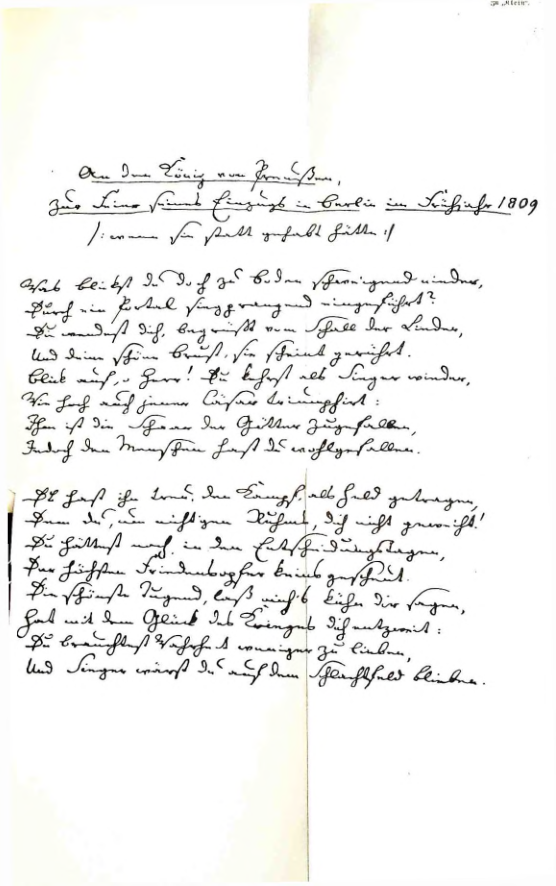 An den König von Preußen,
zur Feier seines Einzugs in Berlin im Frühjahr 1809
/: wenn sie statt gehabt hätte :/
Was blickst du doch zu Boden schweigend nieder,
Durch ein Portal siegprangend eingeführt?
Du wendest dich, begrüßt vom Schall der Lieder,
Und deine schöne Brust, sie scheint gerührt.
Blick auf, o Herr! Du kehrst als Sieger wieder,
Wie hoch auch jener Cäsar triumphirt:
Ihm ist die Schaar der Götter zugefallen,
Jedoch den Menschen hast du wohlgefallen.
Du hast ihn treu, den Kampf, als Held getragen,
Dem du, um nichtigen Ruhm, dich nicht geweiht!
Du hättest noch, in den Entscheidungstagen,
Der höchsten Friedensopfer keins gescheut.
Die schönste Tugend, laß mich's kühn dir sagen,
Hat mit dem Glück des Krieges dich entzweit:
Du brauchtest Wahrheit weniger zu lieben,
Und Sieger wärst du auf dem Schlachtfeld blieben.